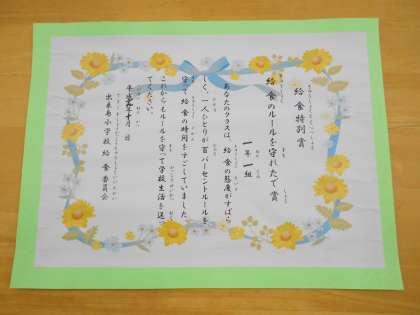 給食特別賞
給食のルールを守れたで賞
一年一組
あなたのクラスは、給食の態度がすばら
しく、一人ひとりが百パーセントルールを
守って給食の時間をすごしていました。
これからもルールを守って学校生活を送っ
てください。
平成 年十月 日
出来島小学校 給食委員会